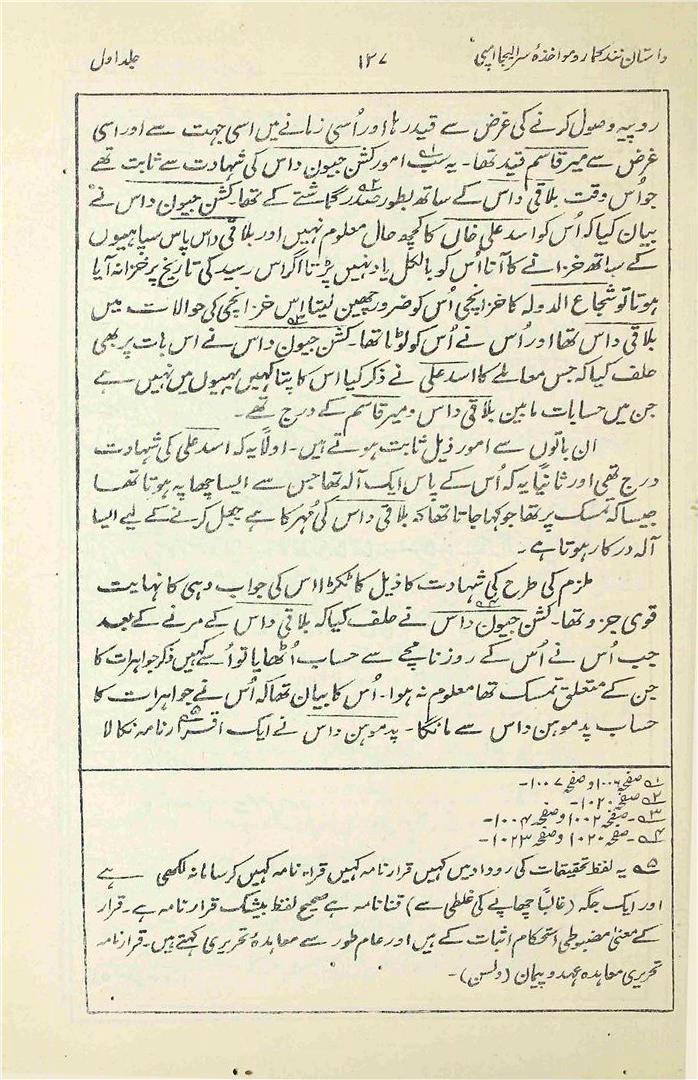 داستان نند کمار و مواخذۂ سر الیجا امپی ۱۲۷ جلد اول
روپیہ وصول کرنے کی غرض سے قید رہا اور اُسی زمانے میں اسی جہت سے اور اسی
غرض سے میر قاسم قید تھا۔ یہ سب ۱؎ امور کشن جیون داس کی شہادت سے ثابت تھے
جو اُس وقت بلاقی داس کے ساتھ بطور صدر ۲؎ گماشتے کے تھا۔ کشن جیون داس نے
بیان کیا کہ اُس کو اسد علی خاں کا کچھ حال معلوم نہیں اور بلاقی داس پاس سپاہیوں
کے ساتھ خزانے کا آنا اُس کو بالکل یاد نہیں پڑتا اگر اس رسید کی تاریخ پر خزانہ آیا
ہوتا تو شجاع الدولہ کا خزانچی اُس کو ضرور چھین لیتا اس خزانچی کی حوالات میں
بلاقی داس تھا اور اُس نے اُس کو لوٹا تھا۔ ۳؎ کشن جیون داس نے اس بات پر بھی
حلف کیا کہ جس معاملے کا اسد علی نے ذکر کیا اس کا پتا کہیں بہیوں میں نہیں ہے
جن میں حسابات مابین بلاقی داس و میر قاسم کے درج تھے۔
ان باتوں سے امور ذیل ثابت ہوتے ہیں۔ اولاً یہ کہ اسد علی کی شہادت
درج تھی اور ثانیاً یہ کہ اُس کے پاس ایک آلہ تھا جس سے ایسا چھاپہ ہوتا تھا
جیسا کہ تمسک پر تھا جو کہا جاتا تھا کہ بلاقی داس کی مُہر کا ہے جعل کرنے کے لیے ایسا
آلہ درکار ہوتا ہے۔
ملزم کی طرح کی شہادت کا ذیل کا ٹکڑا اس کی جواب دہی کا نہایت
قوی جزو تھا۔ کشن جیون ۴؎ داس نے حلف کیا کہ بلاقی داس کے مرنے کے بعد
جب اُس نے اُس کے روزنامچے سے حساب اُٹھایا تو اُسے کہیں ذکر جواہرات کا
جن کے متعلق تمسک تھا معلوم نہ ہوا۔ اُس کا بیان تھا کہ اُس نے جواہرات کا
حساب پدموہن داس سے مانگا۔ پدموہن داس نے ایک اقرارنامہ ۵؎ نکالا
۱؎ صفحہ ۱۰۰۶ و صفحہ ۱۰۰۷۔
۲؎ صفحہ ۱۰۲۰۔
۳؎ ۔ صفحہ ۱۰۰۲ و صفحہ ۱۰۰۴۔
۴؎ ۔ صفحہ ۱۰۲۰ و صفحہ ۱۰۲۳۔
۵؎ یہ لفظ تحقیقات کی روداد میں کہیں قرار نامہ کہیں قراء نامہ کہیں کرسانامہ لکھی ہے
اور ایک جگہ (غالباً چھاپے کی غلطی سے) قنانامہ ہے صحیح لفظ بیشک قرار نامہ ہے۔ قرار
کے معنی مضبوطی استحکام اثبات کے ہیں اور عام طور سے معاہدہ تحریری کہتے ہیں۔ قرارنامہ
تحریری معاہدہ عہد و پیمان (ولسن)۔